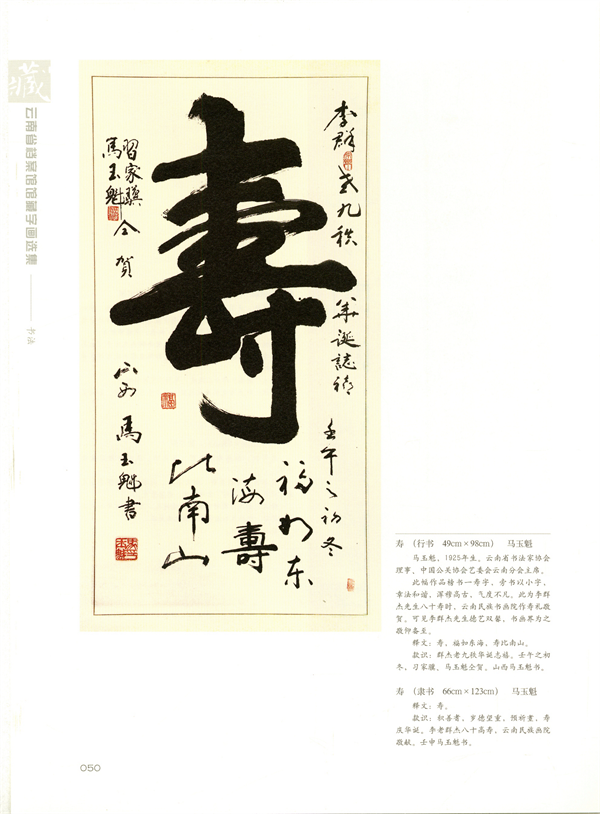 藏
云南省档案馆馆藏字画选集
书法
李群
老九秩
华诞誌禧
壬午之初冬
壽
福如东
海壽
比南山
習家驥
馬玉魁
仝贺
山西馬玉魁書
寿 （行书 49cm×98cm） 马玉魁
马玉魁，1925年生。云南省书法家协会
理事、中国公关协会艺委会云南分会主席。
此幅作品榜书一寿字，旁书以小字，
章法和谐，浑穆高古，气度不凡。此为李群
杰先生八十寿时，云南民族书画院作寿礼敬
贺。可见李群杰先生德艺双馨，书画界为之
敬仰备至。
释文：寿。福如东海，寿比南山。
款识：群杰老九秩华诞志禧。壬午之初
冬。习家骥、马玉魁仝贺，山西马玉魁书。
寿 （隶书 66cm×123cm） 马玉魁
释文：寿。
款识：积善者，岁德望重，预祈耋，寿
庆华诞。李老群杰八十高寿，云南民族画院
敬献。壬申马玉魁书。
050